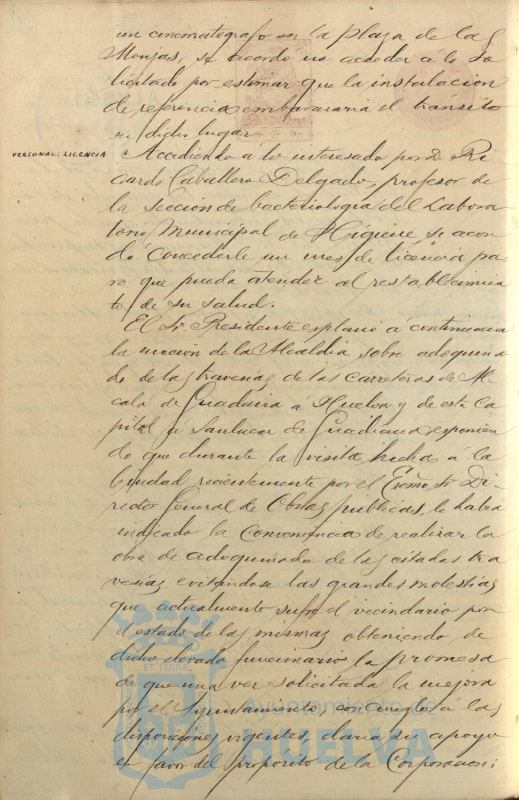 un cinematógrafo en la plaza de las
Monjas, se acordó no acceder á lo so-
licitado por estimar que la instalacion
de referencia embarazaria el transito
en dicho lugar.
PERSONAL: LICENCIA
Accediendo á lo interesado por D. Ri-
cardo Caballero Delgado, profesor de
la Seccion de bacteriologia del Labora-
torio Municipal de Higiene se acor-
dó concederle un mes de licencia pa-
ra que pueda atender al restablecimien-
to de su salud.
El Sr. Presidente explanó á continuacion
la mocion de la Alcaldia sobre adoquina-
do de las travesias de las carreteras de Al-
calá de Guadaira á Huelva y de esta Ca-
pital á Sanlucar de Guadiana exponien-
do que durante la visita hecha á la
Ciudad recientemente por el Excmo. Sr. Di-
rector General de Obras publicas, le habia
indicado la conveniencia de realizar la
obra de adoquinado de las citadas tra-
vesias evitandose las grandes molestias
que actualmente sufre el vecindario por
el estado de las mismas obteniendo de
dicho elevado funcionario la promesa
de que una vez solicitada la mejora
por el Ayuntamiento, con arreglo a las
disposiciones vigentes, daria su apoyo
en favor del propósito de la Corporacion;
EL TERRAE
HUELVA